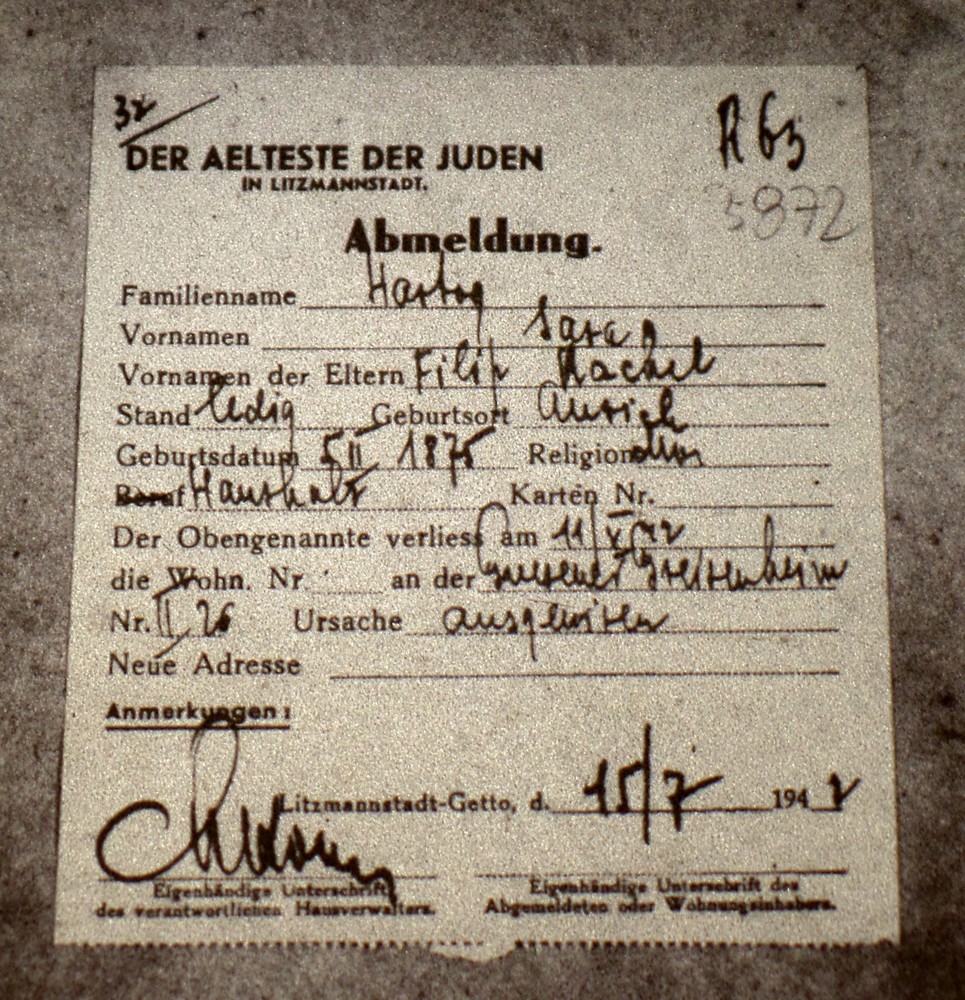 32
R 63
DER AELTESTE DER JUDEN
IN LITZMANNSTADT.
5872
Abmeldung.
Familienname Hartog
Vornamen Sara
Vornamen der Eltern Filip Rachel
Stand ledig Geburtsort Aurich
Geburtsdatum 5 II 1875 Religion mos
Beruf Haushalt Karten Nr.
Der Obengenannte verliess am 11/V 42
die Wohn. Nr. an der Gnesener Greisenheim
Nr. II/26 Ursache ausgewiesen
Neue Adresse
Anmerkungen:
Litzmannstadt-Getto, d. 15/7 1942
Eigenhändige Unterschrift
des verantwortlichen Hausverwalters.
Eigenhändige Unterschrift des
Abgemeldeten oder Wohnungsinhabers.